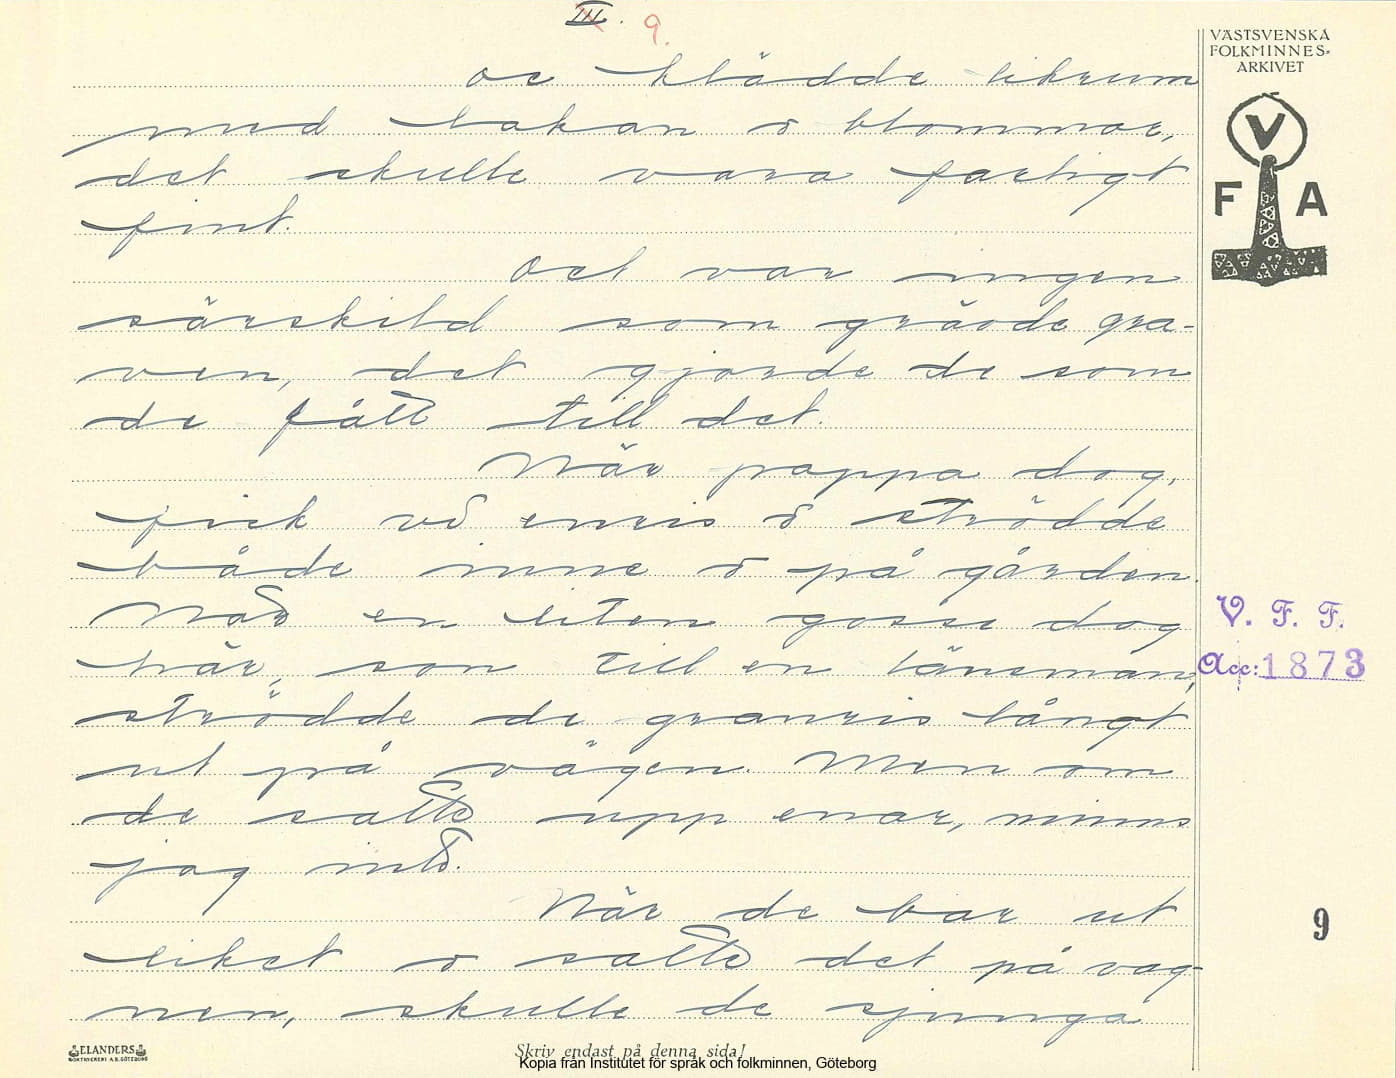 III. 9.
VÄSTSVENSKA
FOLKMINNES-
ARKIVET
V
F A
De klädde likrum
med lakan o blommor,
det skulle vara farligt
fint.
Det var ingen
särskild som grävde gra-
ven, det gjorde de som
de fått till det.
När pappa dog,
fick vi enris o strödde
både inne o på gården.
När en liten gosse dog
här, son till en länsman,
strödde de granris långt
ut på vägen. Men om
de satte upp enar, minns
jag inte.
När de bar ut
liket o satte det på vag-
nen, skulle de sjunga
V. F. F.
Acc: 1873
9
ELANDERS
BOKTRYCKERI A.B. GÖTEBORG
Skriv endast på denna sida!
Kopia från Institutet för språk och folkminnen, Göteborg